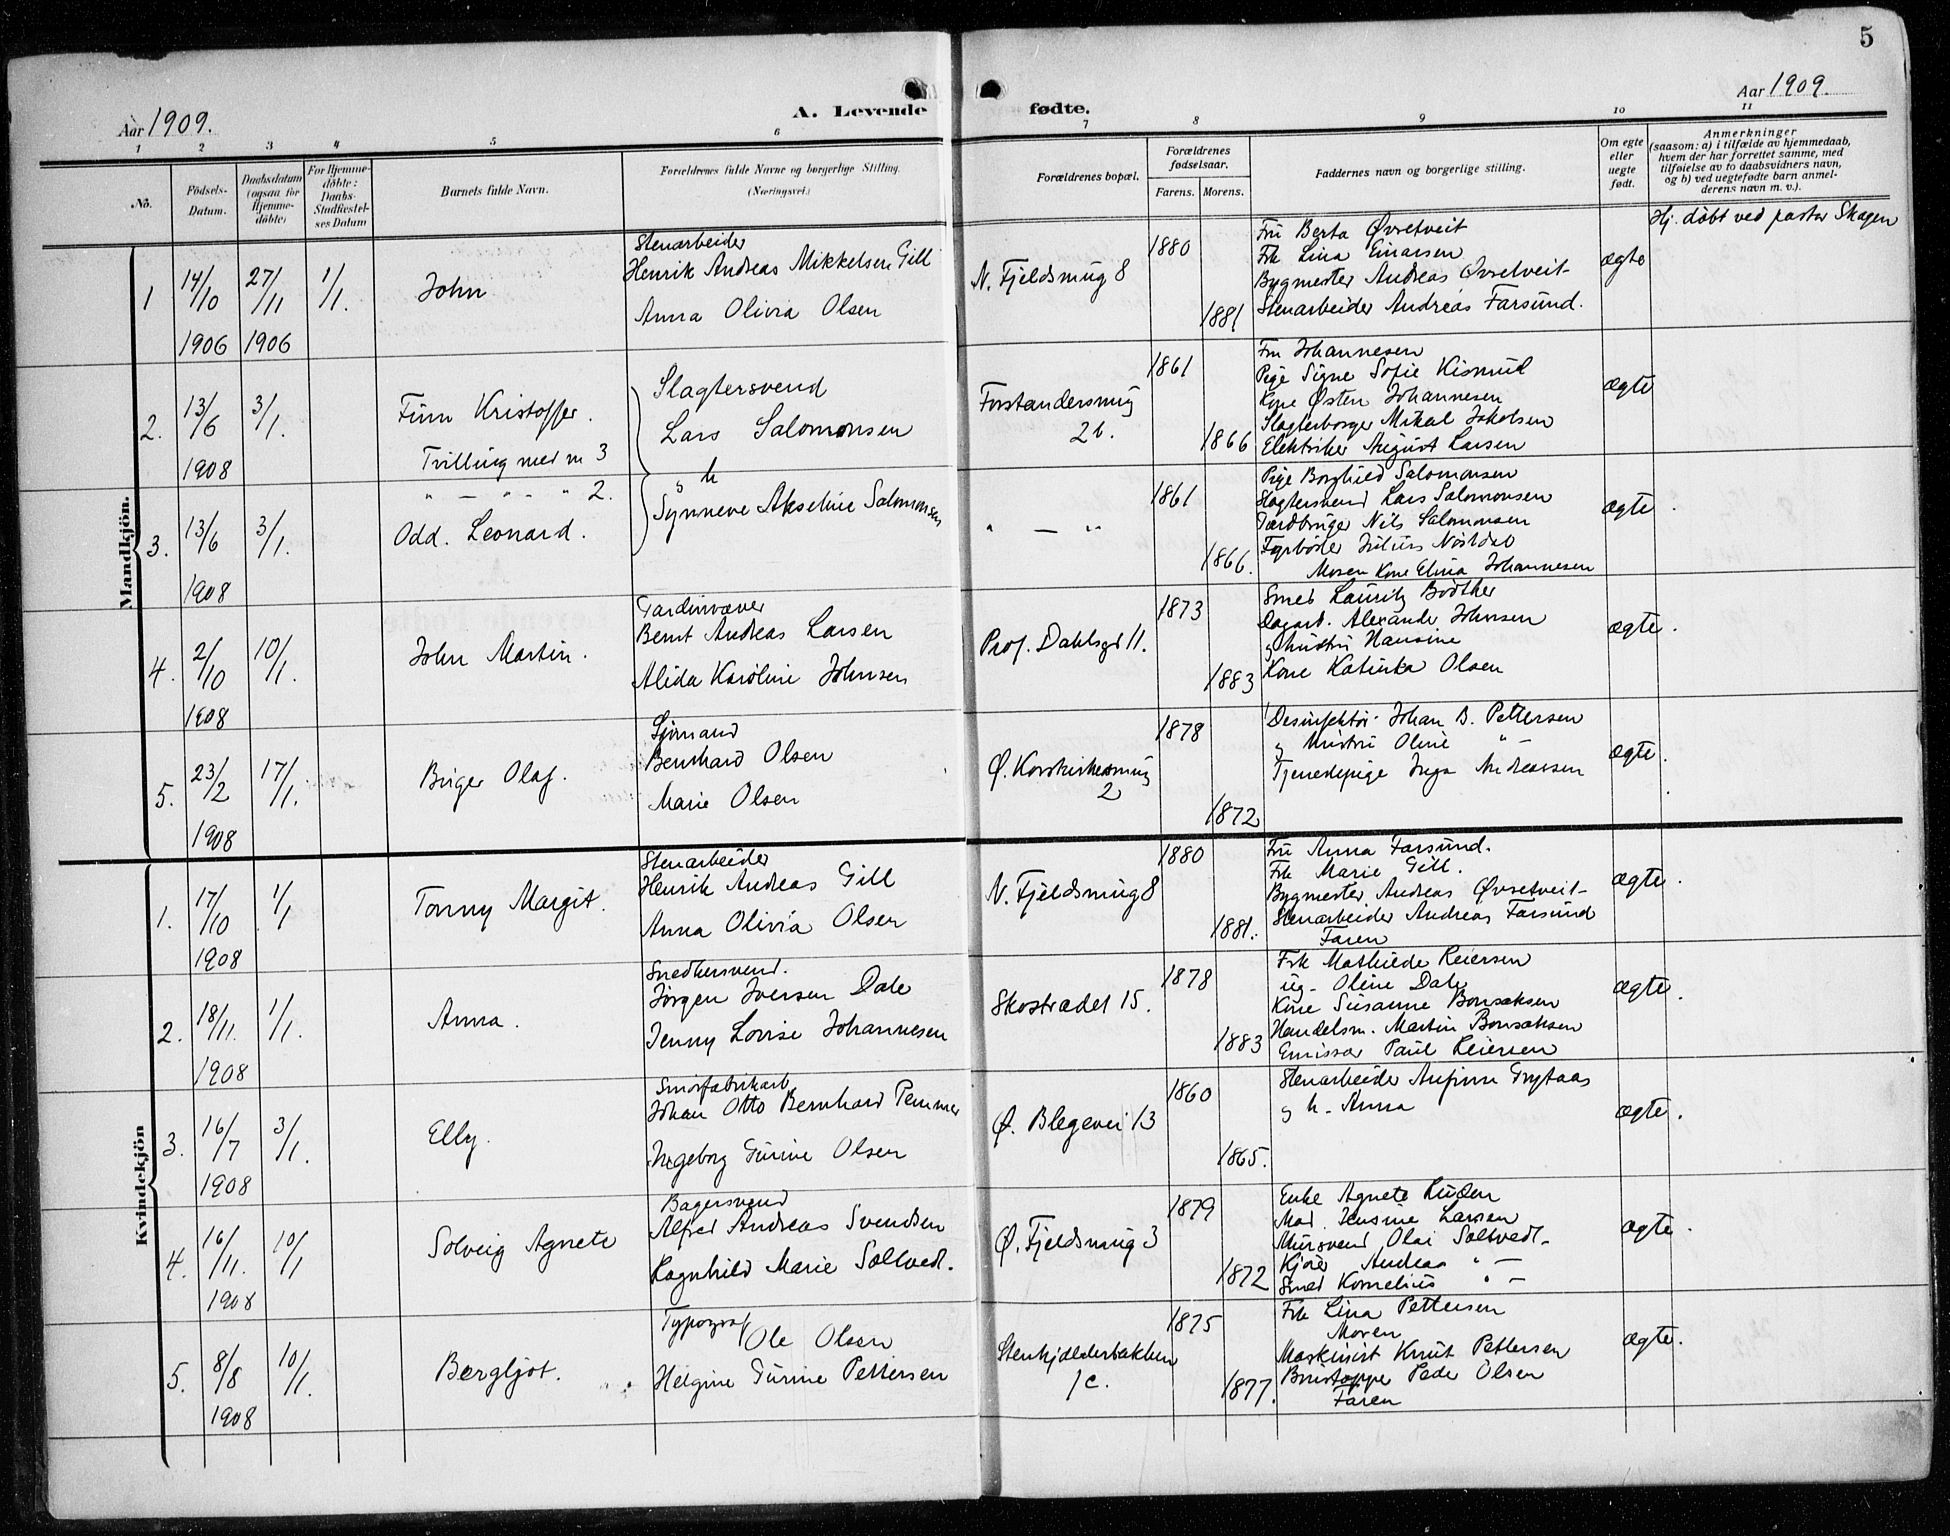 5
Aar 1909.
A. Levende fødte.
Aar 1909.
1 2 3 4 5 6 7 8 9 10 11
No.
Födsels-Datum.
Daabsdatum (ogsaa for Hjemme-döbte)
For Hjemme-döbte: Daabs-Stadfæstel-ses Datum
Barnets fulde Navn.
Forældrenes fulde Navne og borgerlige Stilling. (Næringsvei.)
Forældrenes bopæl.
Forældrenes fødselsaar.
Farens. Morens.
Faddernes navn og borgerlige stilling.
Om egte eller uegte født.
Anmerkninger
(saasom: a) i tilfælde av hjemmedaab,
hvem der har forrettet samme, med
tilføielse av to daabsvidners navn,
og b) ved uegtefødte barn anmel-
derens navn m. v.).
Mandkjön.
1 14/10 1906 27/11 1906 1/1. John
Stenarbeider
Henrik Andreas Mikkelsen Gill
Anna Olivia Olsen
N. Fjeldsmug 8 1880 1881
Fru Berta Øvsetveit
Frk Lina Einarsen
Bygmester Andreas Øvsetveit
Stenarbeider Andreas Farsund.
ægte
Hj. döbt ved pastor Skagen
2. 13/6 1908 3/1. Finn Kristoffer.
Tvilling med no 3
Slagtersvend
Lars Salomonsen
Forstandersmug 2b. 1861 1866
Fru Johannesen
Pige Signe Sofie
Kone Østen Johannesen
Mikal Jakobsen
Elektriker August Larsen
ægte
3. 13/6 1908 3/1. " — " - " 2.
Odd. Leonard.
og h
Synneve Akseline Salomonsen
" — " 1861 1866.
Pige Borghild Salomonsen
Slagtersvend Lars Salomonsen
Nils Salomonsen
Fyrbøder Julius
Moren Kone Elina Johannesen
ægte.
4. 2/10 1908 10/1. John Martin.
Gardinvæver
Bernt Andreas Larsen
Alida Karoline Johnsen
Prof. Dahlsgd 11. 1873 1883
Smed Lauritz Bödtker
Dagarb. Alexander Johnsen
og hustru Hansine
Kone Katinka Olsen
ægte.
5. 23/2 1908 17/1. Birger Olaf.
Sjömand
Bernhard Olsen
Marie Olsen
Ø. Korskirkesmug 2 1878 1872
Desinfektör Johan B. Pettersen
og hustru Oline " —
Tjenestepige Inga Andreasen
ægte.
Kvindekjön
1. 17/10 1908 1/1 Tonny Margit.
Stenarbeider
Henrik Andreas Gill
Anna Olivia Olsen
N. Fjeldsmug 8 1880 1881.
Fru Anna Farsund.
Frk Marie Gill.
Bygmester Andreas Øvsetveit
Stenarbeider Andreas Farsund
Faren
ægte.
2. 18/11. 1908 1/1. Anna.
Snedkersvend.
Jørgen Iversen Dale
Jenny Lovise Johannesen
Skostrædet 15. 1878 1883
Frk Mathilde Reiersen
ug. Oline Dale
Kone Susanne Bonsaksen
Handelsm. Martin Bonsaksen
Emissær Paul Reiersen
ægte.
3. 16/7 1908 3/1. Elly.
Smörfabrikarb.
Johan Otto Bernhard Temmer
Ingeborg Gurine Olsen
Ø. Blegevei 13 1860 1865.
Stenarbeider Anfinn Grytaas
og h. Anna
ægte.
4. 16/11. 1908 10/1 Solveig Agnete
Bagersvend
Alfred Andreas Svendsen
Ragnhild Marie Soltvedt.
Ø. Fjeldsmug 3 1879 1872
Enke Agnete Luden
Mad. Jensine Larsen
Mursvend Olai Soltvedt
Kjører Andreas " —
Smed Kornelius " —
ægte.
5. 8/8 1908 10/1. Bergljot.
Typograf
Ole Olsen
Helgine Gurine Pettersen
Stenkjelderbakken 1c. 1875 1877.
Frk Lina Pettersen
Moren
Maskinist Knut Pettersen
Peder Olsen
Faren
ægte.